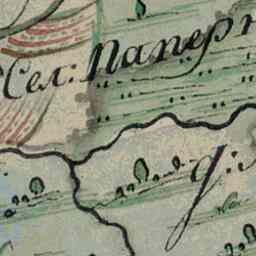 Сел: Паперн
д: